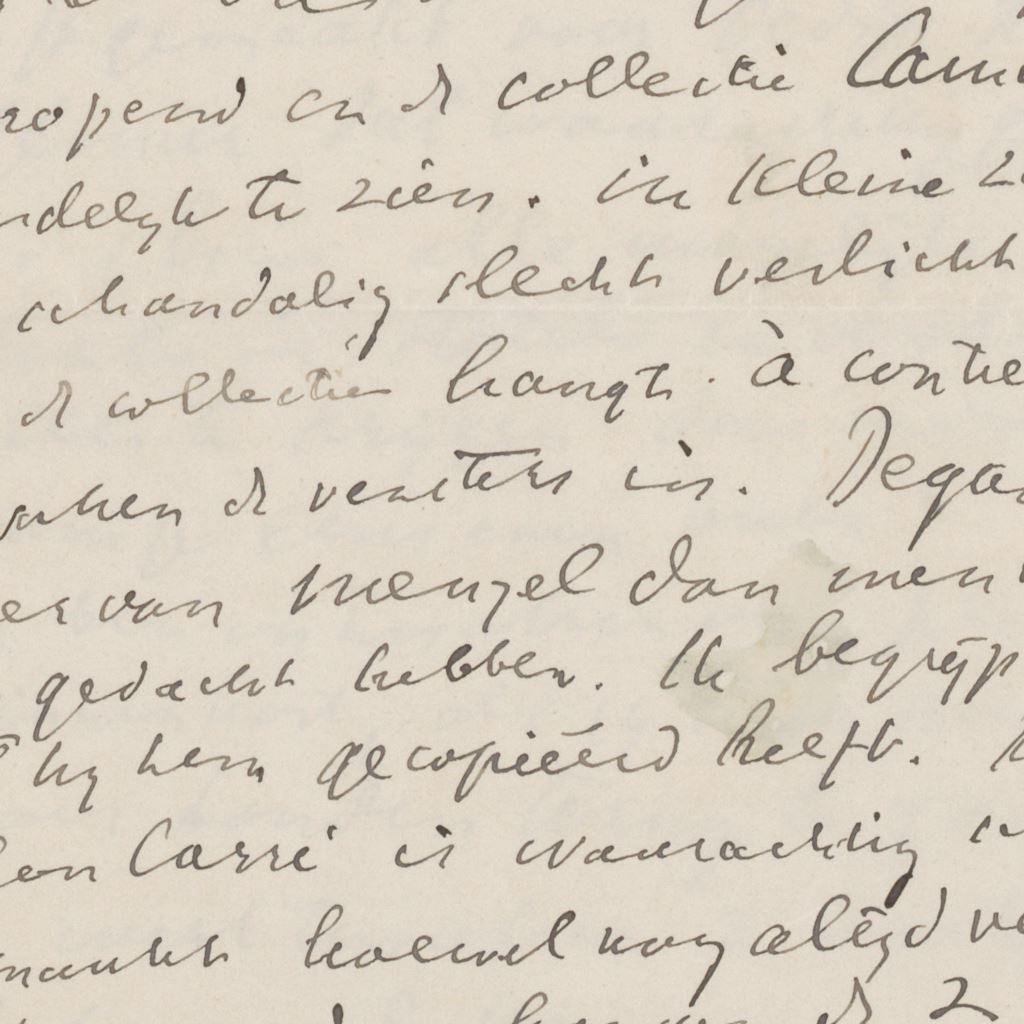 ropend en de collectie Cam
ndelyk te zien. in kleine
schandalig slecht verlicht
de collectie hangt. à contre
de vensters in. Degas
er van Menzel dan men
gedacht hebben. Ik begryp
hy hem gecopiëerd heeft.
Carré is waarachtig
hoewel nog altyd
de 2